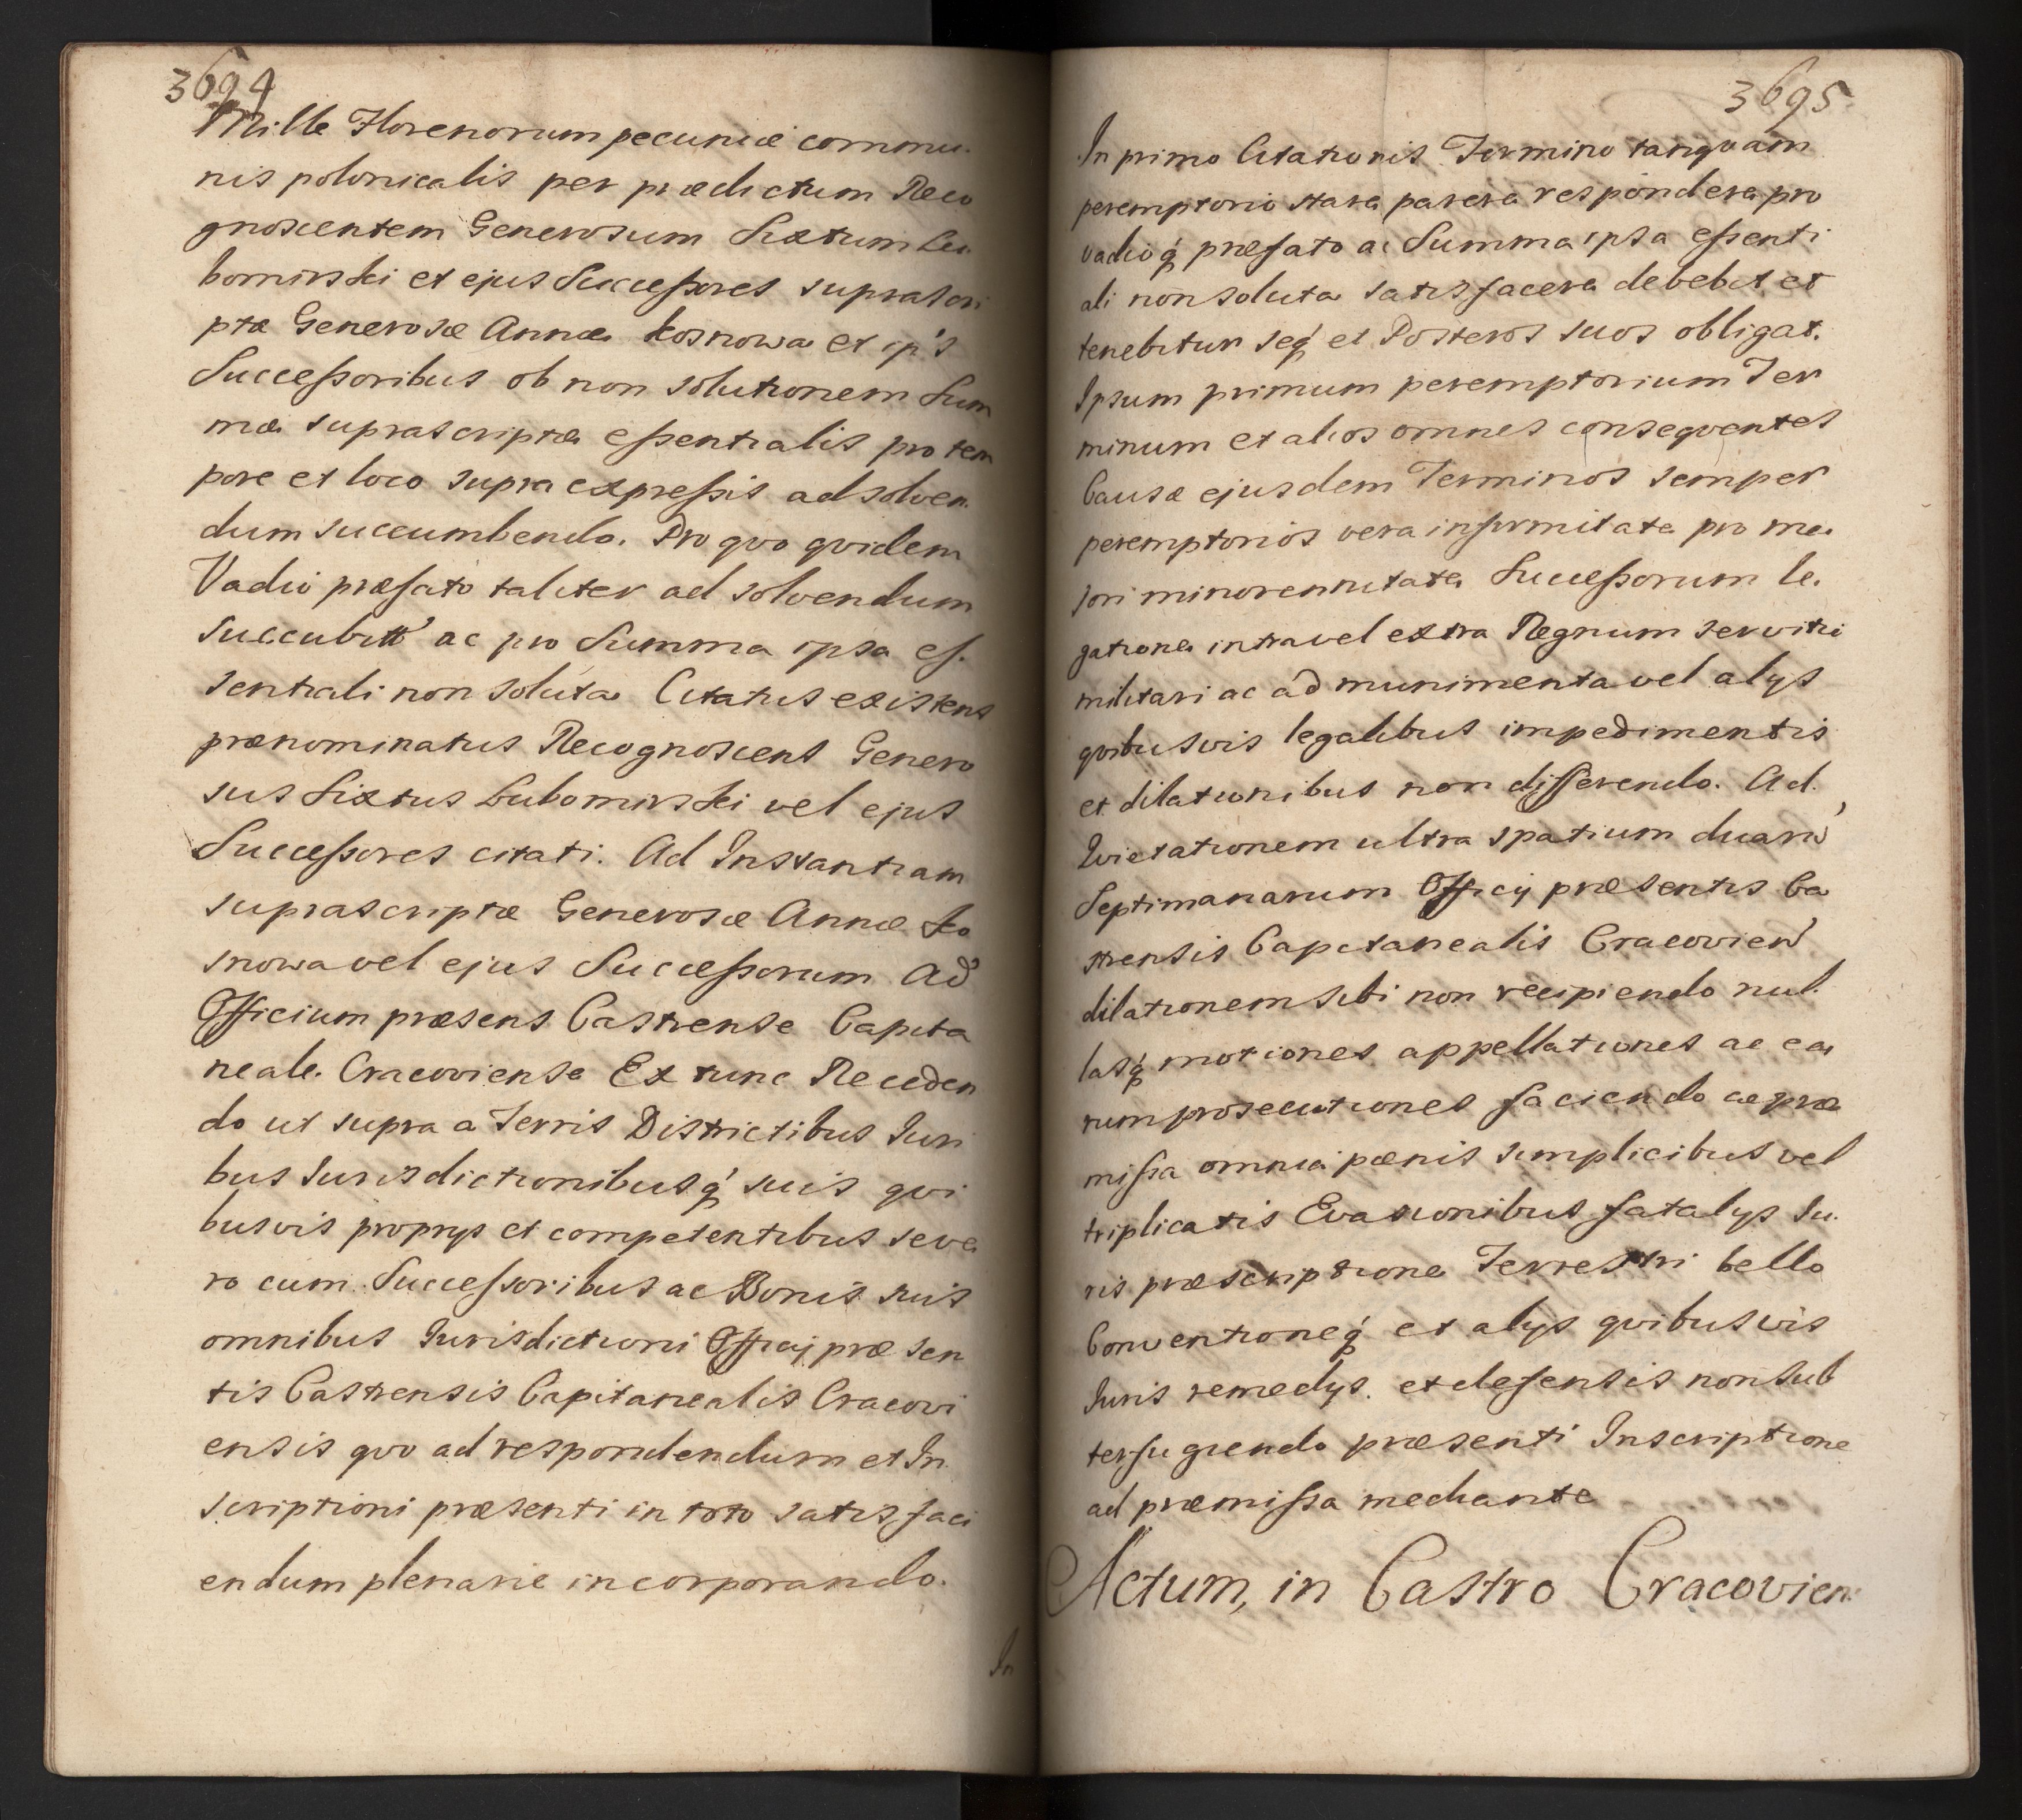 3694
Mille Florenorum pecuniæ commu-
nis polonicalis per prædictum Reco
gnoscentem Generosum Sixtum Lu-
bomirski et ejus Successores suprascri
ptæ Generosæ Annæ Kosnowa et ip's
Successoribus ob non solutionem Sum
mæ suprascriptæ essentialis pro tem
pore et loco supra expressis ad solven-
dum succumbendo. Pro qvo qvidem
Vadio præfato taliter ad solvendum
succubitt ac pro Summa ipsa es-
sentiali non soluta Citatus existens
prænominatus Recognoscens Genero
sus Sixtus Lubomirski vel ejus
Successores citati. Ad Instantiam
suprascriptæ Generosæ Annæ Ko
snowa vel ejus Successorum Ad
Officium præsens Castrense Capita
neale Cracoviense Ex tunc Receden
do ut supra a Terris Districtibus Juri
bus Jurisdictionibusq́ suis qvi
busvis proprys et competentibus seve
ro cum Successoribus ac Bonis suis
omnibus Jurisdictioni Officij præsen
tis Castrensis Capitanealis Cracovi
ensis qvo ad respondendum et In
scriptioni præsenti in toto satisfaci
endum plenarie incorporando.
In
3695
In primo Citationis Termino tanqvam
peremptorio stare parere respondere pro
vadioq́ præfato ac Summa ipsa essenti
ali non soluta satisfacere debebit et
tenebitur seq́ et Posteros suos obligat.
Ipsum primum peremptorium Ter
minum et alios omnes conseqventes
Causæ ejusdem Terminos semper
peremptorios vera infirmitate pro ma-
jori minorennitate Successorum le-
gatione intra vel extra Regnum servitii
militari ac ad munimenta vel alys
qvibusvis legalibus impedimentis
et dilationibus non differendo. Ad
Qvietationem ultra spatium duarū
Septimanarum Officij præsentis Ca
strensis Capitanealis Cracovien
dilationem sibi non recipiendo nul-
lasq́ motiones appellationes ac ea
rum prosecutiones faciendo ac præ
missa omnia pænis simplicibus vel
triplicatis Evasionibus fatalys Ju-
ris præscriptione Terrestri bello
Conventioneq́ et alys qvibusvis
Juris remedys et defensis non sub
terfugiendo præsenti Inscriptione
ad præmissa mediante
Actum, in Castro Cracovien: